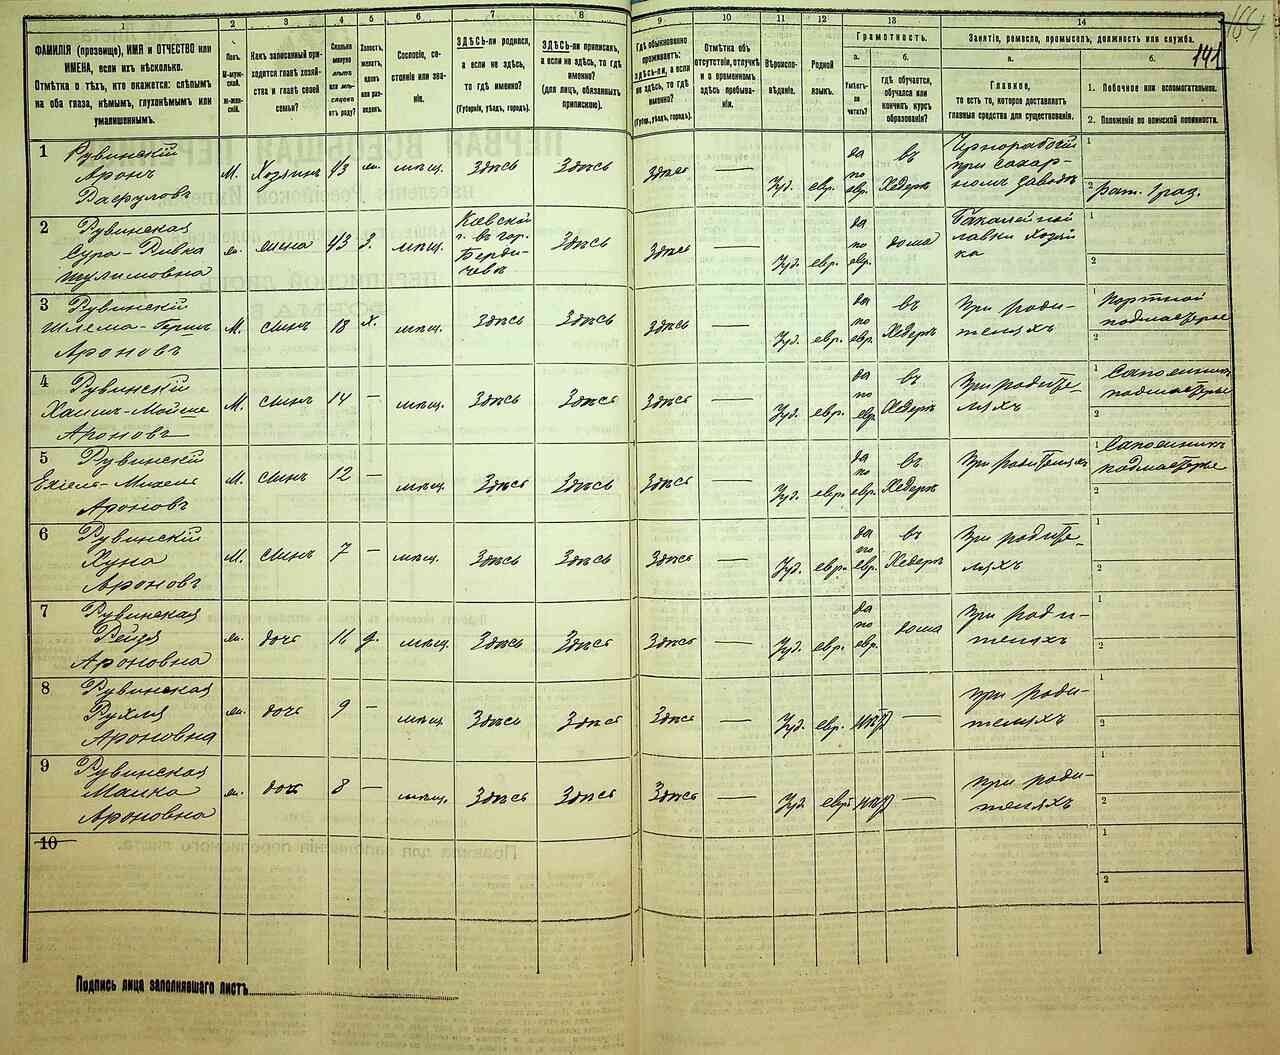 164
141
1 2 3 4 5 6 7 8 9 10 11 12 13 14
ФАМИЛІЯ (прозвище), ИМЯ и ОТЧЕСТВО или
ИМЕНА, если ихъ нѣсколько.
Отмѣтка о тѣхъ, кто окажется: слѣпымъ
на оба глаза, нѣмымъ, глухонѣмымъ или
умалишеннымъ.
Полъ.
М-муж-
ской.
Ж-жен-
скій.
Какъ записанный при-
ходится главѣ хозяй-
ства и главѣ своей
семьи?
Сколько
минуло
лѣтъ
или мѣ-
сяцевъ
отъ роду?
Холостъ,
женатъ,
вдовъ
или раз-
веденъ.
Сословіе, со-
стояніе или зва-
ніе.
ЗДѢСЬ-ли родился,
а если не здѣсь,
то гдѣ именно?
(Губернія, уѣздъ, городъ).
ЗДѢСЬ-ли приписанъ,
а если не здѣсь, то гдѣ
именно?
(для лицъ, обязанныхъ
припискою).
Гдѣ обыкновенно
проживаетъ:
ЗДѢСЬ-ли, а если
не здѣсь, то гдѣ
именно?
(Губерн., уѣздъ, городъ).
Отмѣтка объ
отсутствіи, отлучкѣ
и о временномъ
здѣсь пребыва-
ніи.
Вѣроиспо-
вѣданіе.
Родной
языкъ.
Грамотность.
а.
Умѣетъ-
ли
читать?
б.
гдѣ обучается,
обучался или
кончилъ курсъ
образованія?
Занятіе, ремесло, промыселъ, должность или служба.
а.
Главное,
то есть то, которое доставляетъ
главныя средства для существованія.
б.
1. Побочное или вспомогательное.
2. Положеніе по воинской повинности.
1 Рувинскій
Аронъ
М. Хозяинъ 43 ж. мѣщ. Здѣсь Здѣсь Здѣсь — Іуд. евр.
да
по
евр.
въ
Хедерѣ
Чернорабочій
при сахар-
номъ заводѣ
1
2 рат. 1 раз.
2 Рувинская
Сура-Ривка
Шулимовна
ж. жена 43 з. мѣщ.
Кіевской
г. въ гор.
Берди-
чевѣ
Здѣсь Здѣсь — Іуд. евр.
да
по
евр.
дома
Бакалейной
лавки хозяй
ка
1
2
3 Рувинскій
Шлема-Герш
Ароновъ
М. сынъ 18 х. мѣщ. Здѣсь Здѣсь Здѣсь — Іуд. евр.
да
по
евр.
въ
Хедерѣ
При роди-
теляхъ
1 портной
подмастерье
2
4 Рувинскій
Хаимъ-Мойше
Ароновъ
М. сынъ 14 — мѣщ. Здѣсь Здѣсь Здѣсь — Іуд. евр.
да
по
евр.
въ
Хедерѣ
При родите-
ляхъ
1 Сапожникъ
подмастерье
2
5 Рувинскій
Ароновъ
М. сынъ 12 — мѣщ. Здѣсь Здѣсь Здѣсь — Іуд. евр.
да
по
евр.
въ
Хедерѣ
При родителяхъ
1 Сапожникъ
подмастерье
2
6 Рувинскій
Хуна
Ароновъ
М. сынъ 7 — мѣщ. Здѣсь Здѣсь Здѣсь — Іуд. евр.
да
по
евр.
въ
Хедерѣ
При родите-
ляхъ
1
2
7 Рувинская
Рейзя
Ароновна
ж. дочь 16 д. мѣщ. Здѣсь Здѣсь Здѣсь — Іуд. евр.
да
по
евр.
дома
При роди-
теляхъ
1
2
8 Рувинская
Рухля
Ароновна
ж. дочь 9 — мѣщ. Здѣсь Здѣсь Здѣсь — Іуд. евр. нѣтъ —
при роди-
теляхъ
1
2
9 Рувинская
Малка
Ароновна
ж. дочь 8 — мѣщ. Здѣсь Здѣсь Здѣсь — Іуд. евр. нѣтъ —
при роди-
теляхъ
1
2
10
1
2
Подпись лица заполнявшаго листъ